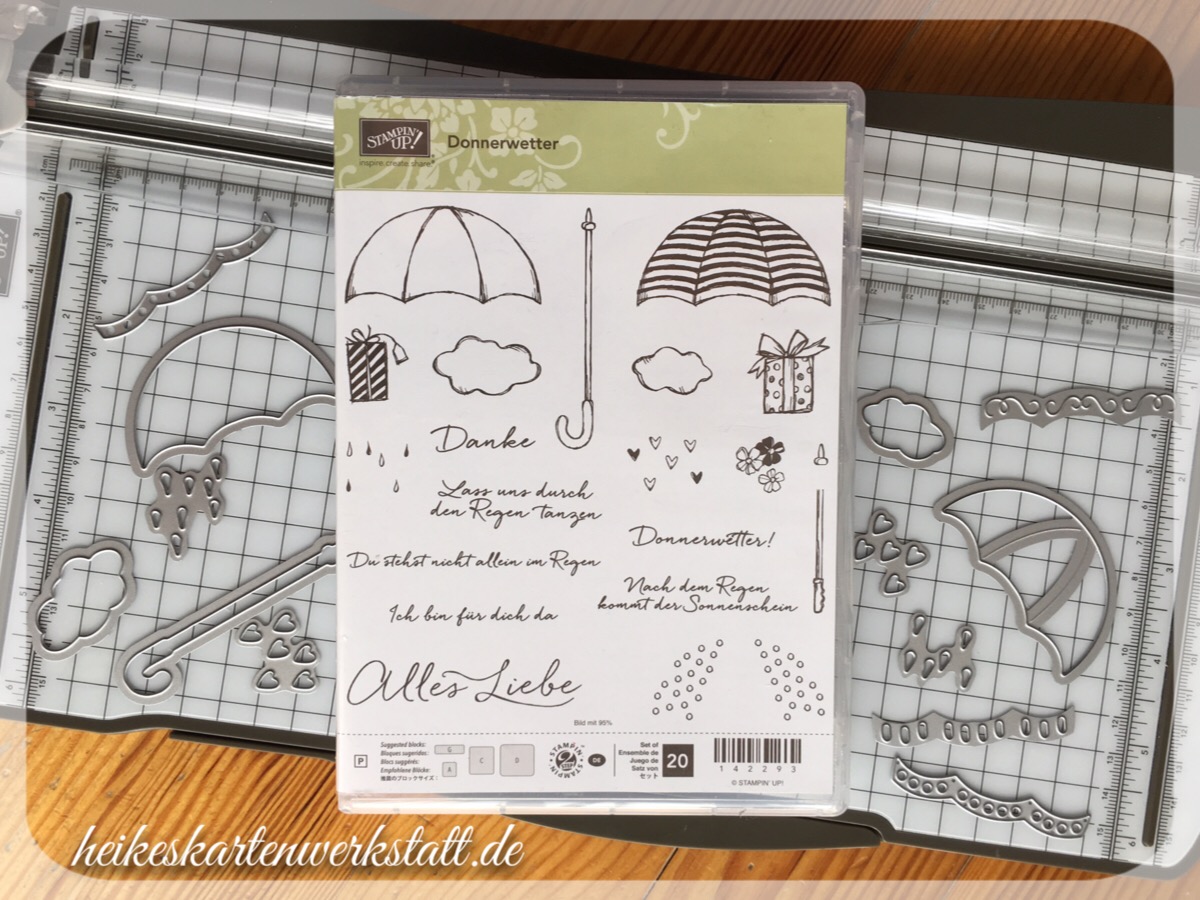 STAMPIN' UP!
inspire.create.share
Donnerwetter
Danke
Lass uns durch
den Regen tanzen
Du stehst nicht allein im Regen
Ich bin für dich da
Alles Liebe
Donnerwetter!
Nach dem Regen
kommt der Sonnenschein
Bild mit 95%
P
Suggested blocks:
Bloques sugeridos:
Blocs suggérés:
Empfohlene Blöcke:
推奨のブロックサイズ:
G
A
C
D
STAMPIN' 2 STEP STAMPIN'
DE
Set of
Ensemble de
Juego de
Satz von
セット
20
142293
© STAMPIN' UP!
UP!
heikeskartenwerkstatt.de